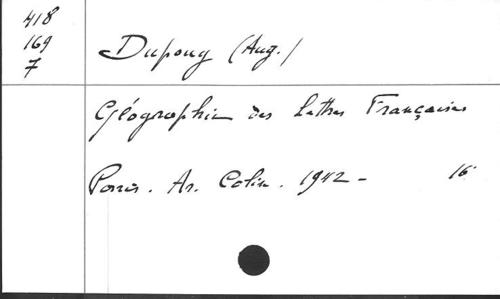 418
169
7
Dupouy (Aug.)
Géographie des Lettres Françaises
Paris. Ar. Colin. 1942 - 16